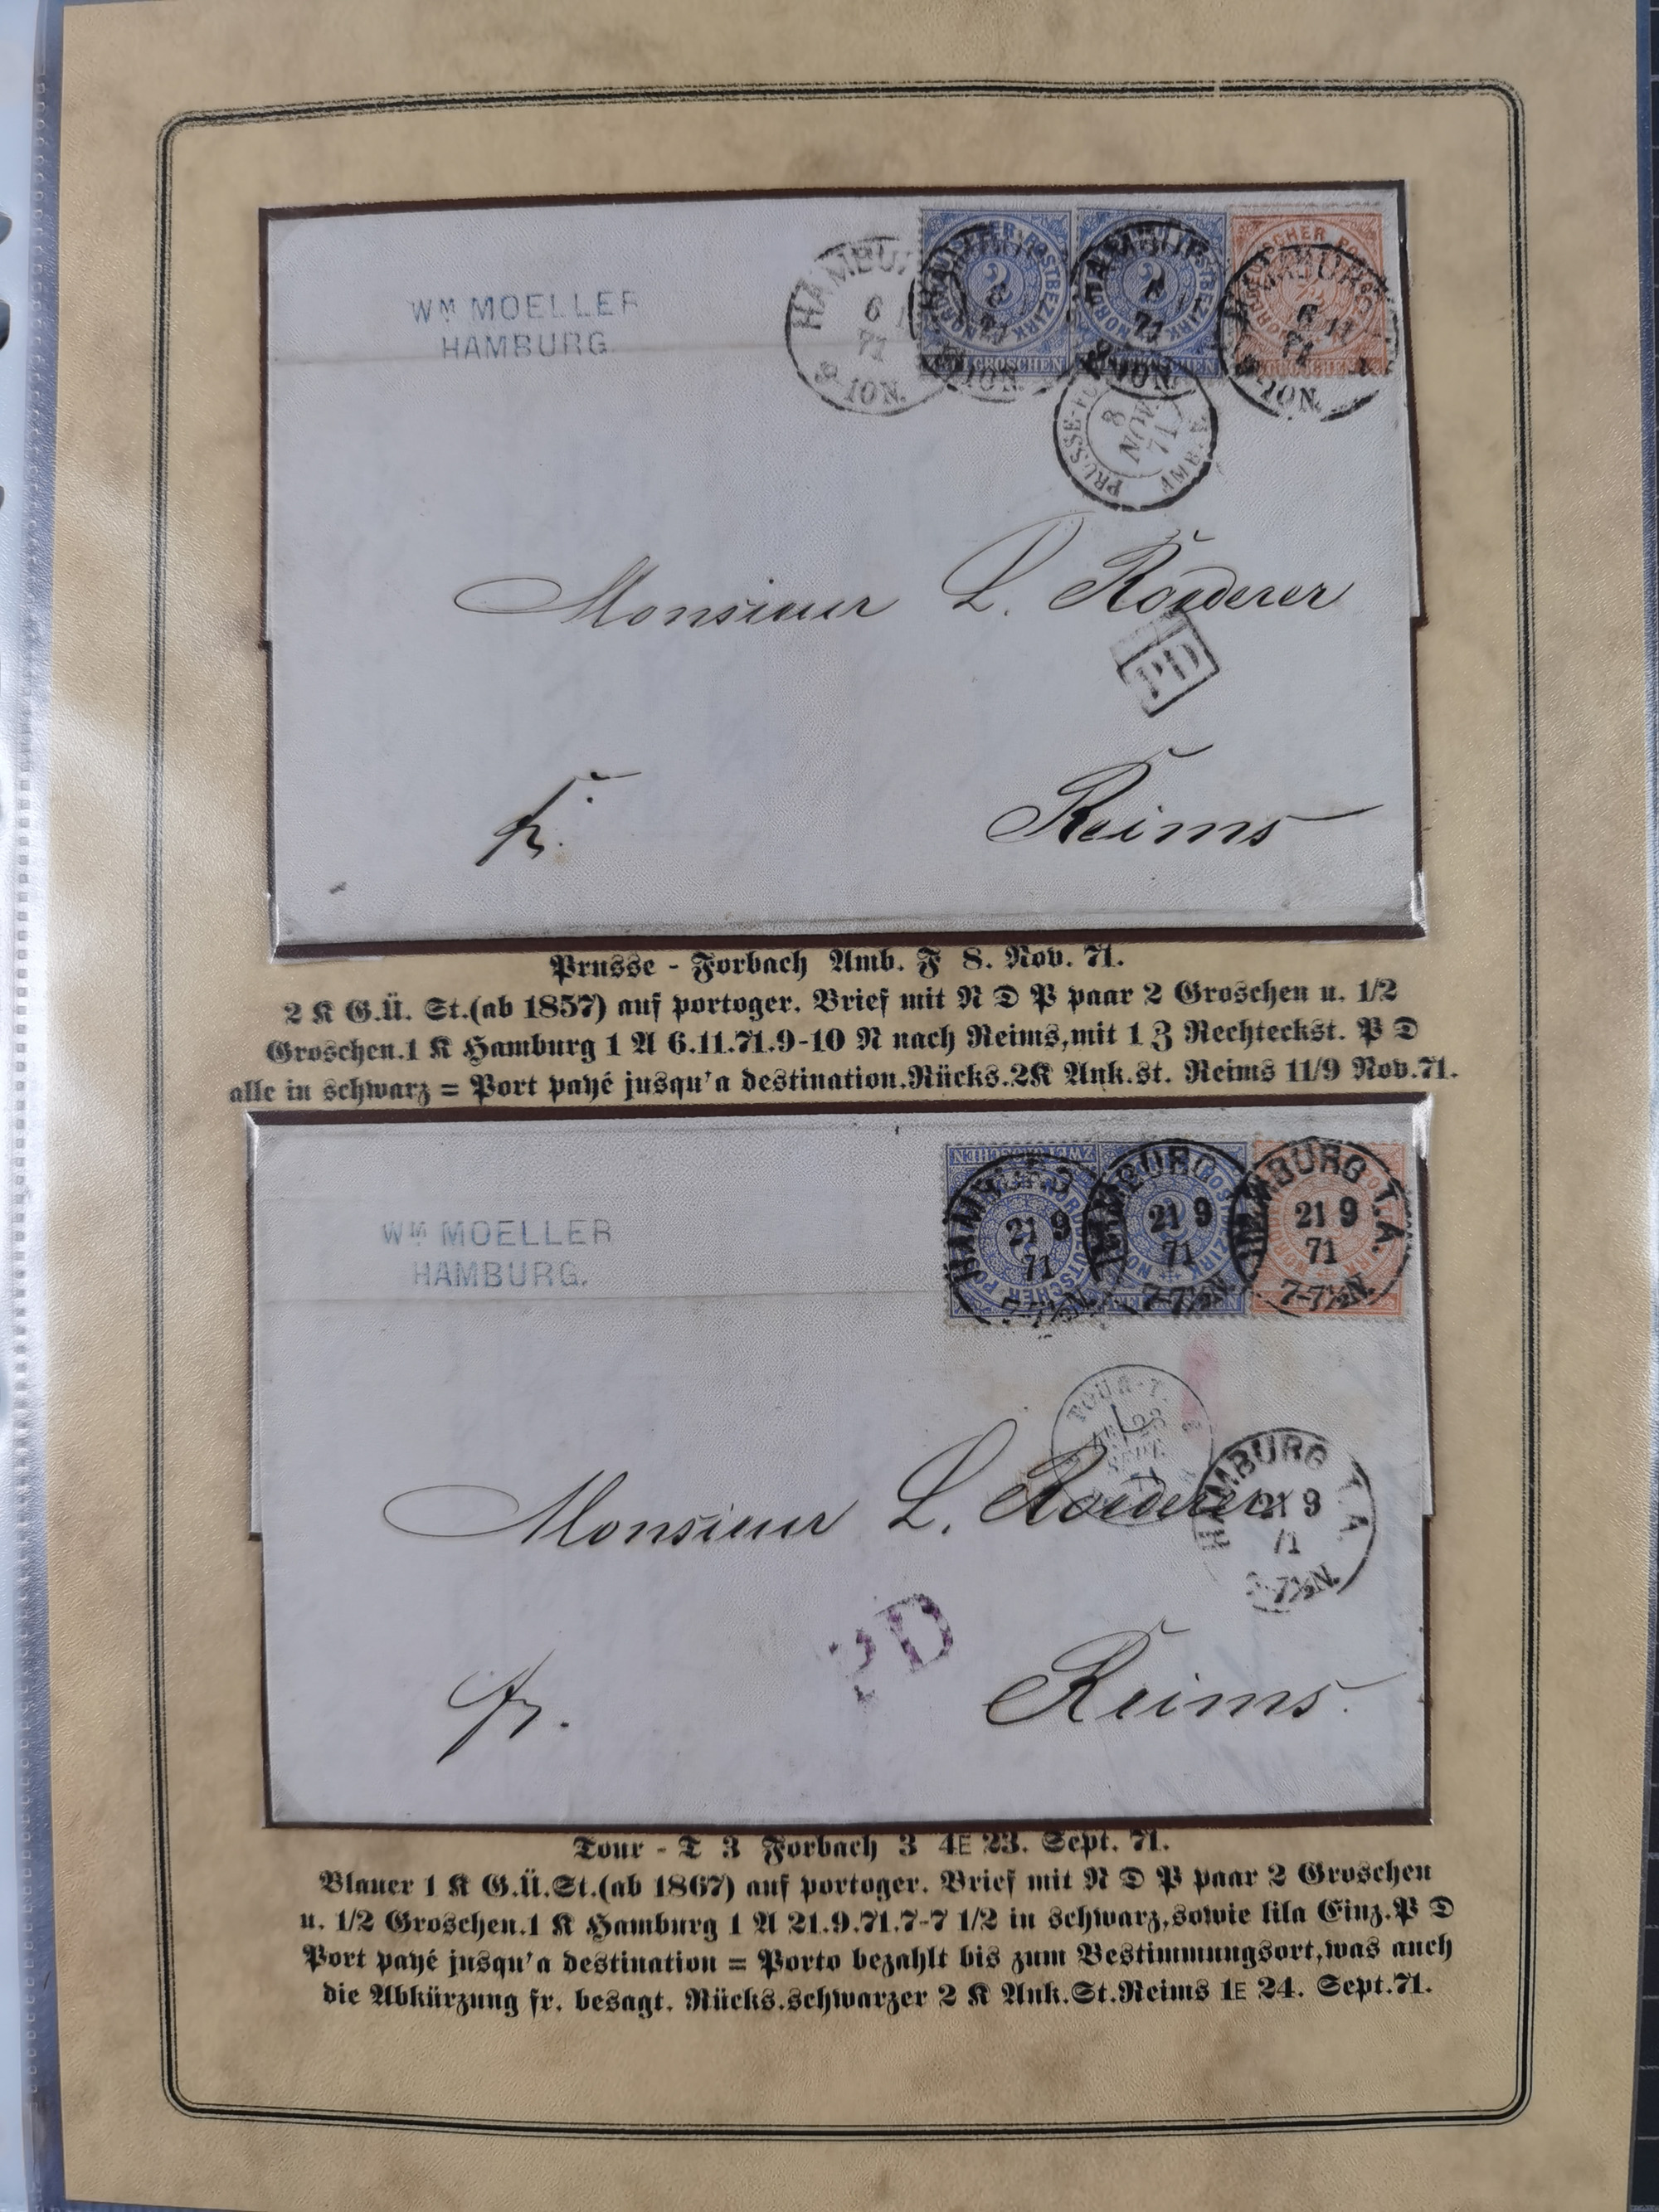 WM MOELLER
HAMBURG
HAMBU
6
71
ION.
GROSCHEN
6 11
71
ION.
8
NOV.
71
Monsieur L. Roederer
PD
fr.
Reims
Prusse - Forbach Amb. F 8. Nov. 71.
2 K G.Ü. St.(ab 1857) auf portoger. Brief mit N D P paar 2 Groschen u. 1/2
Groschen.1 K Hamburg 1 A 6.11.71.9-10 N nach Reims,mit 1 Z Rechteckst. P D
alle in schwarz = Port payé jusqu'a destination.Rücks.2K Ank.st. Reims 11/9 Nov.71.
WM MOELLER
HAMBURG.
ZWEI GROSCHEN
21 9
71
21 9
71
7-7½N.
BURG T.A.
21 9
71
7-7½N.
TOUR-T.
Monsieur L. Roederer
MBURG T.A.
21 9
71
7½N.
PD
fr.
Reims.
Tour - T 3 Forbach 3 4E 23. Sept. 71.
Blauer 1 K G.Ü.St.(ab 1867) auf portoger. Brief mit N D P paar 2 Groschen
u. 1/2 Groschen.1 K Hamburg 1 A 21.9.71.7-7 1/2 in schwarz,sowie lila Einz.P D
Port payé jusqu'a destination = Porto bezahlt bis zum Bestimmungsort,was auch
die Abkürzung fr. besagt. Rücks.schwarzer 2 K Ank.St.Reims 1E 24. Sept.71.